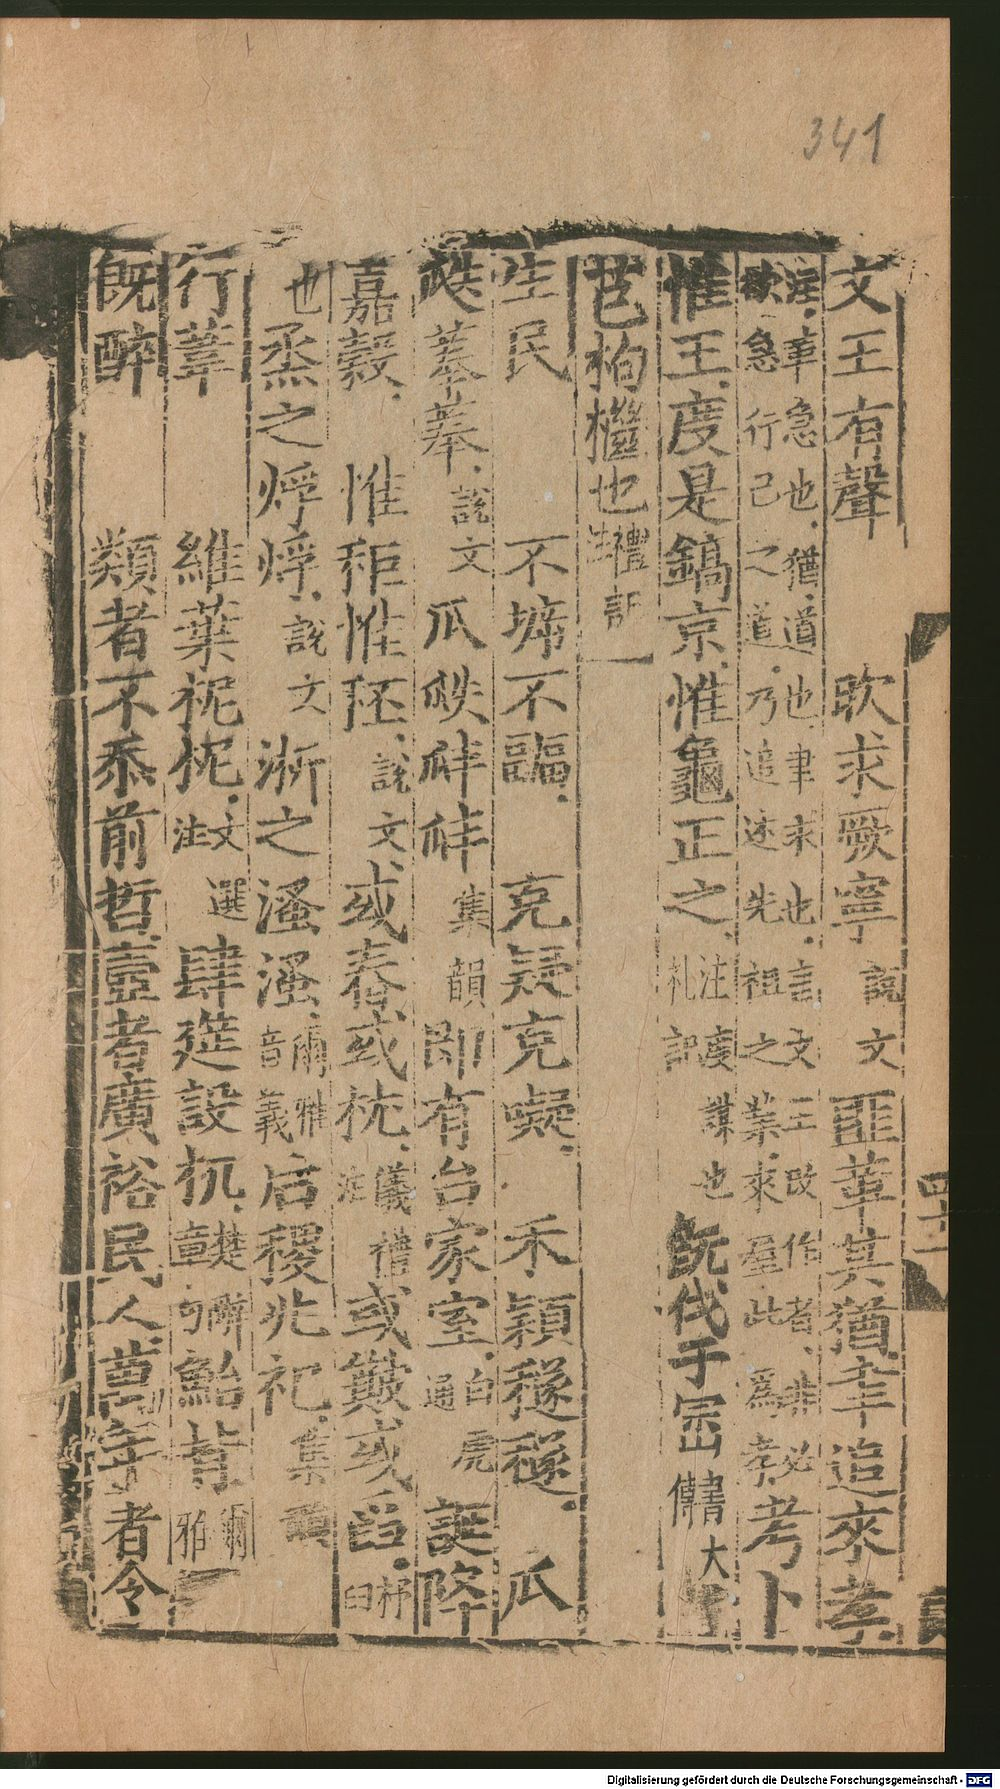 341
文王有聲 欥求厥寧說文 匪革其猶聿追來孝
注革急也猶道也聿求也言文王改作者非必
欲急行己之道乃追述先祖之業來居此爲孝 考卜
惟王度是鎬京惟龜正之注度謀也 札記 既伐于宗書大傳
芑枸檵也禮記注
生民 不坼不疈 克疑克嶷 禾穎穟穟 瓜
瓞菶菶說文 瓜瓞唪唪集韻 即有台家室白虎通 誕降
嘉穀 惟秬惟秠說文 或舂或枕儀禮注 或簸或舀杵臼
也烝之烰烰說文 淅之溞溞爾雅音義 后稷兆祀集
行葦 維葉柅柅文選注 肆筵設机楚辭章句 鮐背爾雅
既醉 類者不忝前哲壼者廣裕民人萬年者令
四十一
Digitalisierung gefördert durch die Deutsche Forschungsgemeinschaft - DFG